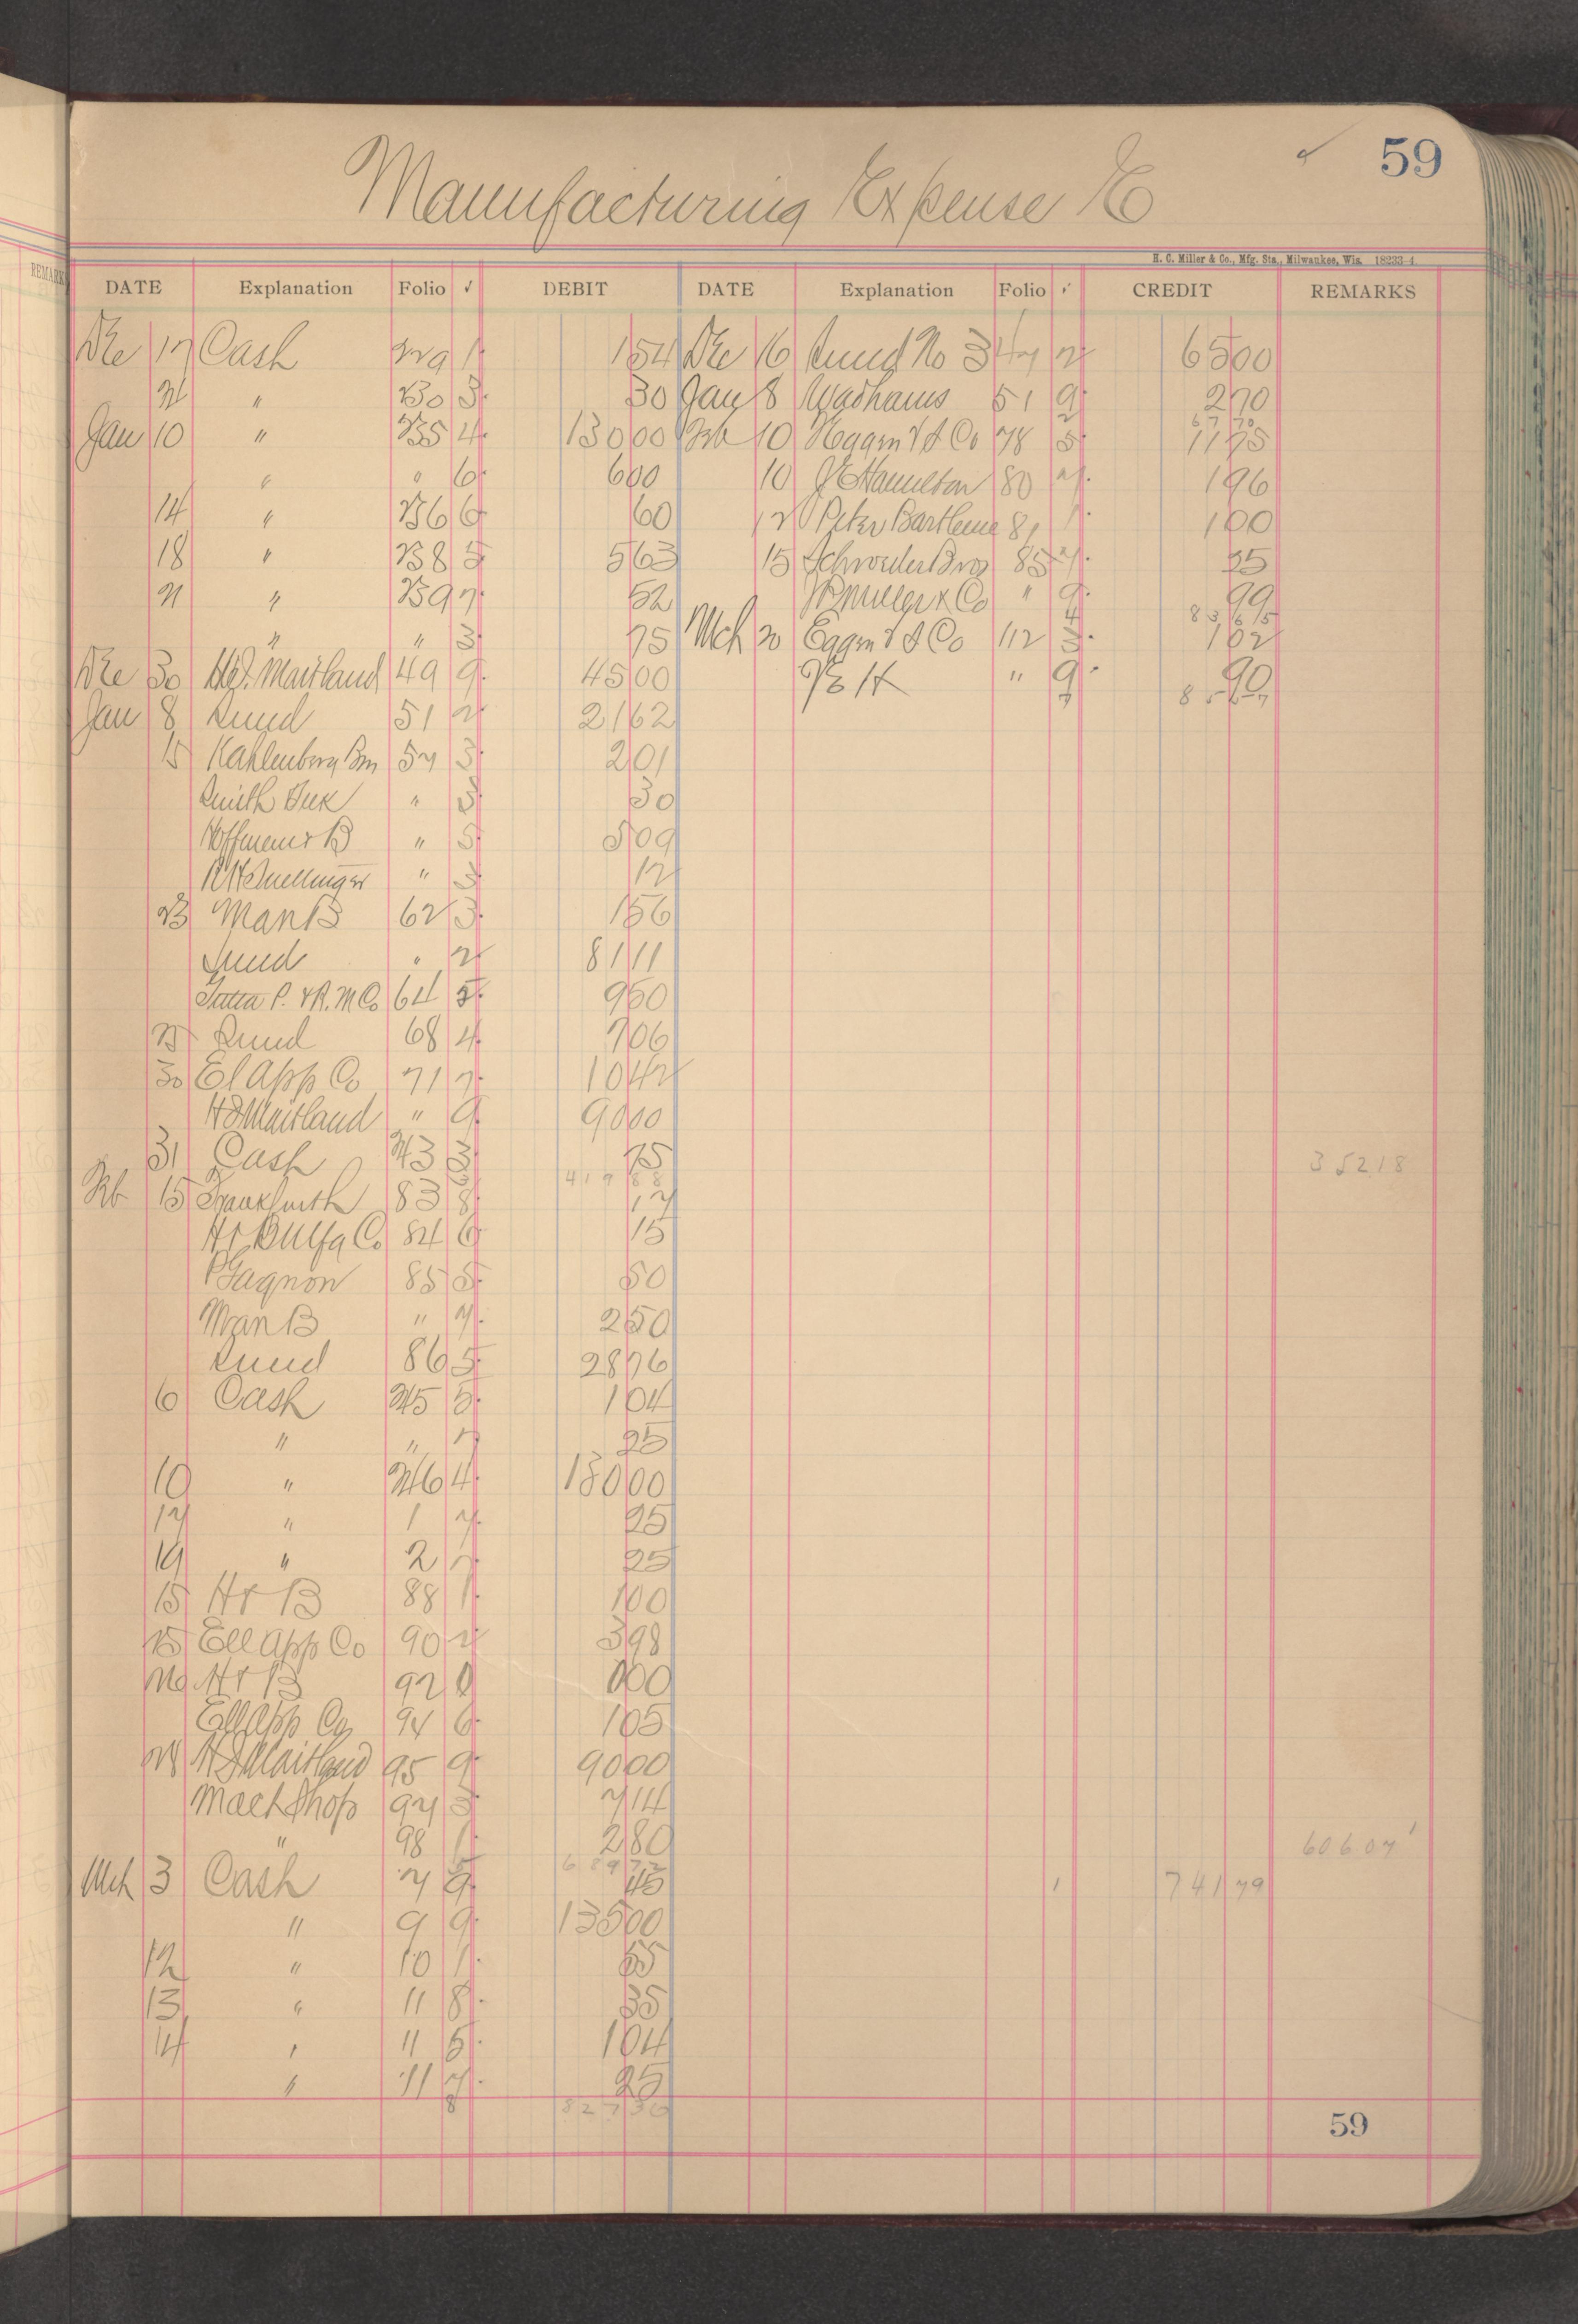 59
Manufacturing Expense E
H. C. Miller & Co., Mfg. Sta., Milwaukee, Wis. 18233-4
DATE Explanation Folio ✓ DEBIT DATE Explanation Folio ✓ CREDIT REMARKS
Dec 17 Cash 229 1 1 54 Dec 16 Sund No 3 47 2 65 00
21 " 230 3 30 Jan 8 Wadhams 51 9 2 70
67 70
Jan 10 " 235 4 130 00 Feb 10 & Co 78 5 11 75
" " 6 6 00 10 Hamilton 80 7 1 96
14 " 236 6 60 12 Peter Bartleme 81 1 1 00
18 " 238 5 5 63 15 Schroeder Bros 85 7 25
21 " 239 7 52 Muller & Co " 9 99
83 65
" " 3 75 Mch 20 & Co 112 3 1 02
Dec 30 Maitland 49 9 45 00 " 9 90
85 57
Jan 8 Sund 51 2 21 62
15 Kahlenberg Bros 54 3 2 01
Smith " 3 30
Hoffman & B " 5 5 09
" 3 12
23 Man B 62 3 1 56
Sund " 2 81 11
P. & R. M Co 64 5 9 50
25 Sund 68 4 7 06
30 El App Co 71 7 10 42
Maitland " 9 90 00
31 Cash 243 3 75 352 18
419 88
Feb 15 Frankfurth 83 8 17
H & B Mfg Co 84 6 15
Gagnon 85 5 50
Man B " 7 2 50
Sund 86 5 28 76
6 Cash 245 5 1 04
" " 7 25
10 " 246 4 180 00
17 " 1 7 25
19 " 2 7 25
15 H & B 88 1 1 00
25 Ell App Co 90 2 3 98
H & B 92 0 0 00
Ell App Co 94 6 1 05
28 Maitland 95 9 90 00
Mach Shop 97 3 7 14
" 98 1 2 80 606 07
689 72
Mch 3 Cash 7 9 45 1 741 79
" 9 9 135 00
12 " 10 1 65
13 " 11 8 35
14 " 11 5 1 04
" 11 7 25
8 827 36
59